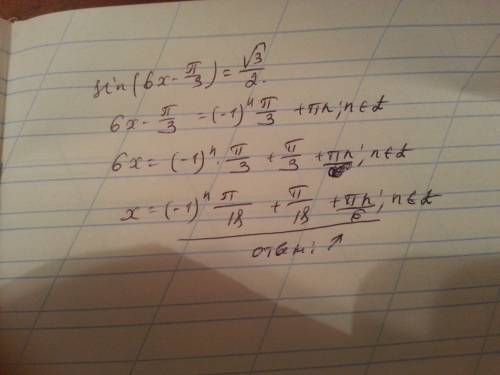 sin(6x - π/3) = √3/2.
6x - π/3 = (-1)ⁿ π/3 + πn; n∈Z
6x = (-1)ⁿ · π/3 + π/3 + πn; n∈Z
x = (-1)ⁿ π/18 + π/18 + πn/6; n∈Z
ответ: ↗